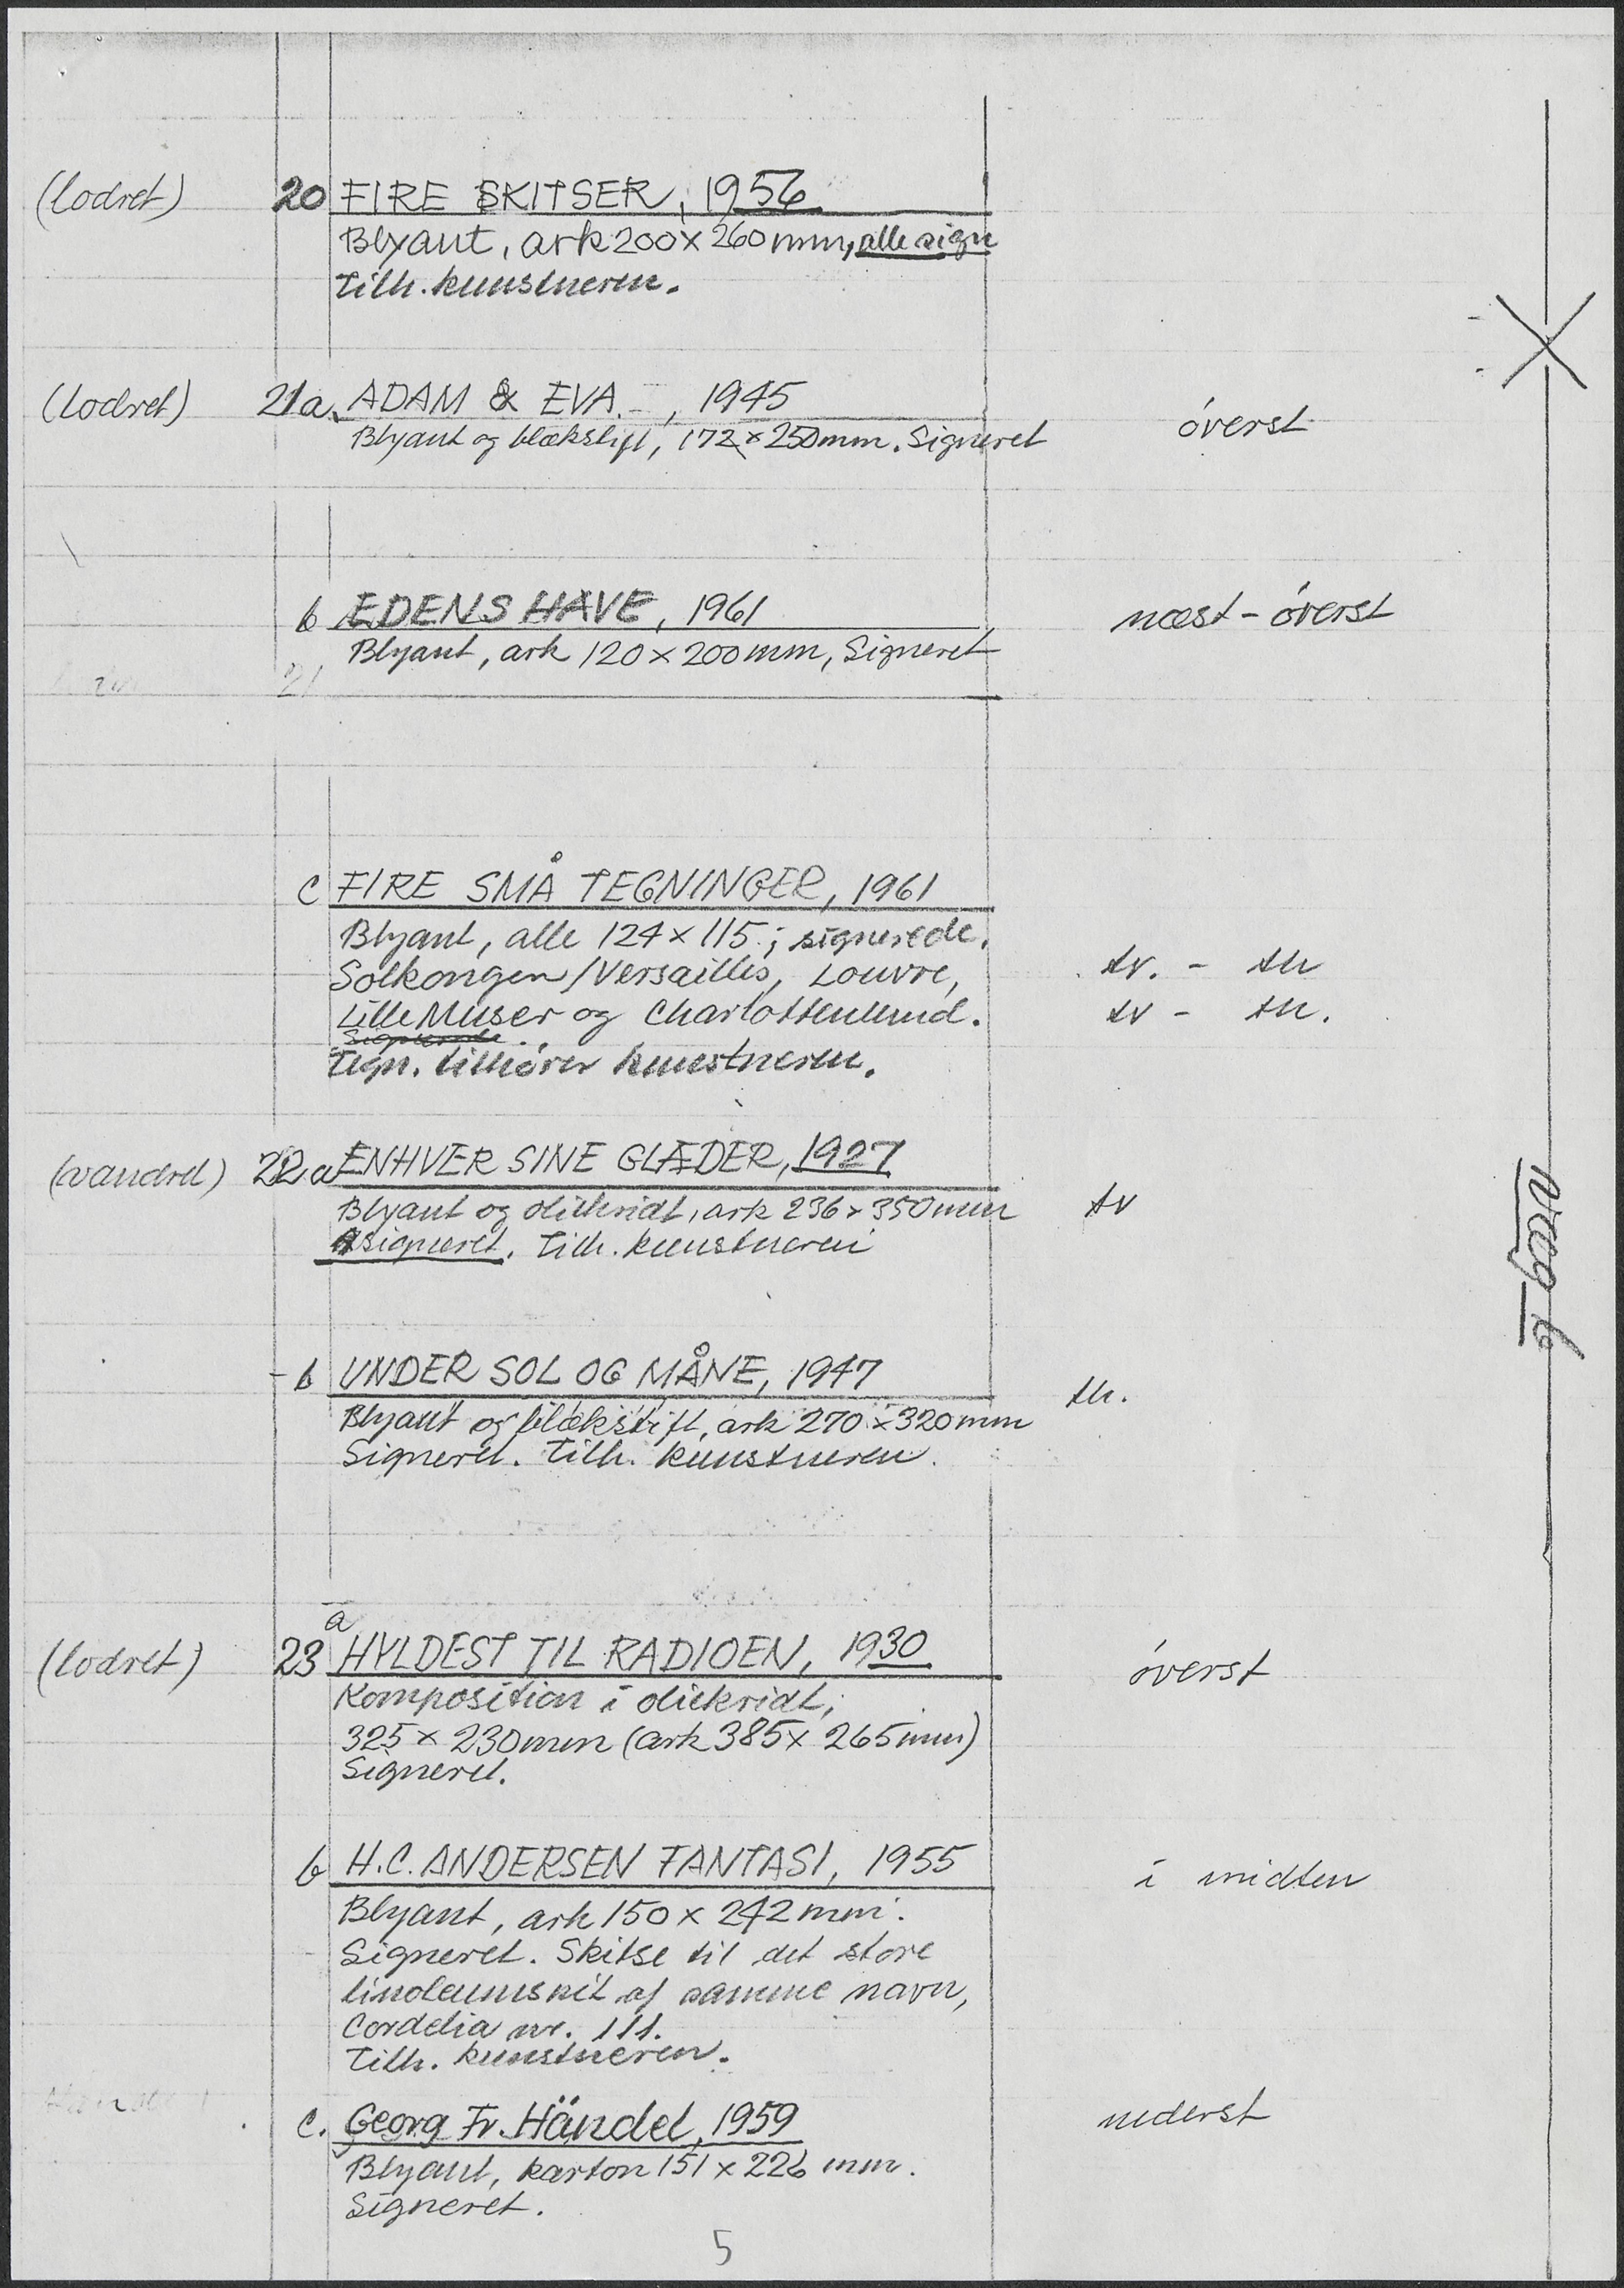 (lodret) 20 FIRE SKITSER, 1956
Blyant, ark 200 x 260 mm, alle sign
Tilh. kunstneren.
(lodret) 21a. ADAM & EVA. - , 1945
Blyant og blækstift, 172 x 250 mm. Signeret øverst
b EDENS HAVE, 1961 næst-øverst
Blyant, ark 120 x 200 mm, Signeret
21
c FIRE SMÅ TEGNINGER, 1961
Blyant, alle 124 x 115.; signerede.
Solkongen/Versailles, Louvre, tv. - th
Lille Muser og Charlottenlund. tv - th.
Signerede
Tegn. tilhører kunstneren.
(vandret) 22.a ENHVER SINE GLÆDER, 1927
Blyant og oliekridt, ark 236 x 350 mm tv
signeret. Tilh. kunstneren
væg 6
- b UNDER SOL OG MÅNE, 1947
Blyant og blækstift, ark 270 x 320 mm th.
Signeret. Tilh. kunstneren.
a
(lodret) 23 HYLDEST TIL RADIOEN, 1930 øverst
Komposition i oliekridt,
325 x 230 mm (ark 385 x 265 mm)
Signeret.
b H.C. ANDERSEN FANTASI, 1955 i midten
Blyant, ark 150 x 242 mm.
Signeret. Skitse til det store
linoleumsnit af samme navn,
Cordelia nr. 111.
Tilh. kunstneren.
c. Georg Fr. Händel, 1959 nederst
Blyant, karton 151 x 226 mm.
Signeret.
5